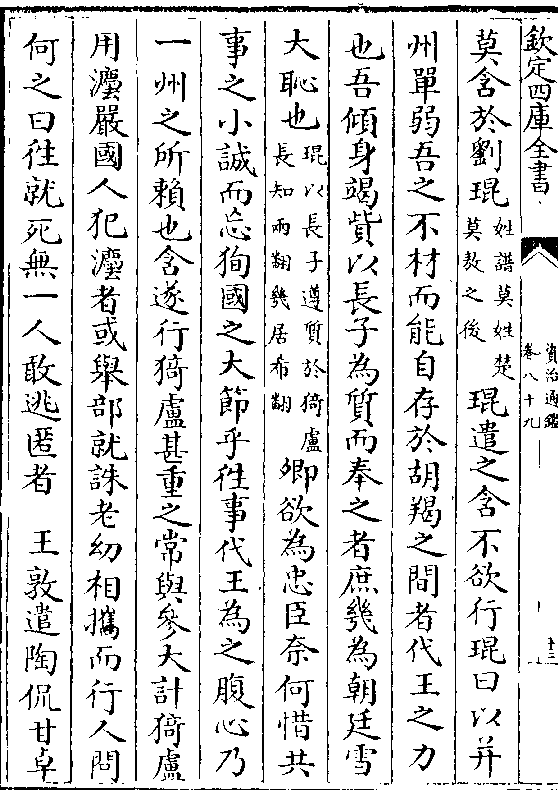 欽定四庫全書
資治通鑑
卷八十九
十三
莫含於劉琨
姓譜莫姓楚
莫敖之後
琨遣之含不欲行琨曰以并
州單弱吾之不材而能自存於胡羯之間者代王之力
也吾傾身竭貲以長子為質而奉之者庶幾為朝廷雪
大恥也
琨以長子遵質於猗盧
長知兩翻幾居布翻
卿欲為忠臣奈何惜共
事之小誠而忘狥國之大節乎徃事代王為之腹心乃
一州之所賴也含遂行猗盧甚重之常與參大計猗盧
用灋嚴國人犯灋者或舉部就誅老幼相攜而行人問
何之曰徃就死無一人敢逃匿者　王敦遣陶侃甘卓